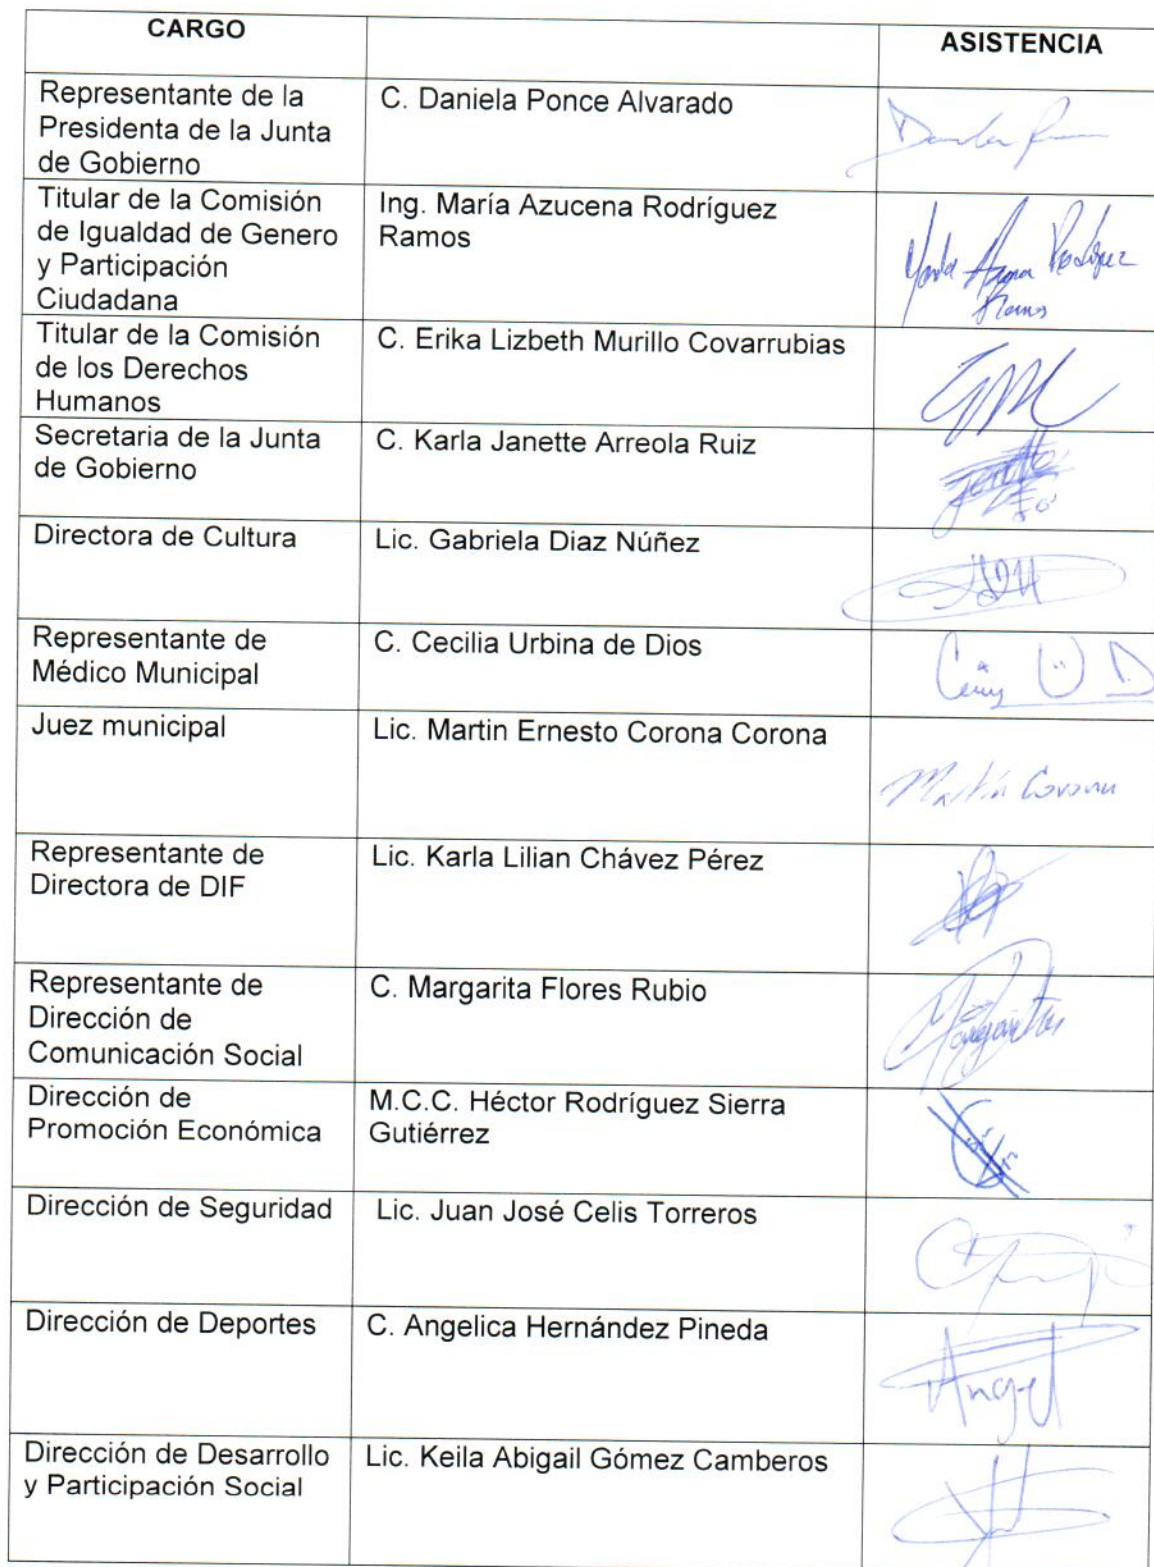 CARGO
ASISTENCIA
Representante de la
Presidenta de la Junta
de Gobierno
C. Daniela Ponce Alvarado
Titular de la Comisión
de Igualdad de Genero
y Participación
Ciudadana
Ing. María Azucena Rodríguez
Ramos
Rodríguez
Ramos
Titular de la Comisión
de los Derechos
Humanos
C. Erika Lizbeth Murillo Covarrubias
Secretaria de la Junta
de Gobierno
C. Karla Janette Arreola Ruiz
Directora de Cultura
Lic. Gabriela Diaz Núñez
Representante de
Médico Municipal
C. Cecilia Urbina de Dios
Juez municipal
Lic. Martin Ernesto Corona Corona
Martín Corona
Representante de
Directora de DIF
Lic. Karla Lilian Chávez Pérez
Representante de
Dirección de
Comunicación Social
C. Margarita Flores Rubio
Margarita
Dirección de
Promoción Económica
M.C.C. Héctor Rodríguez Sierra
Gutiérrez
Dirección de Seguridad
Lic. Juan José Celis Torreros
Dirección de Deportes
C. Angelica Hernández Pineda
Angel
Dirección de Desarrollo
y Participación Social
Lic. Keila Abigail Gómez Camberos